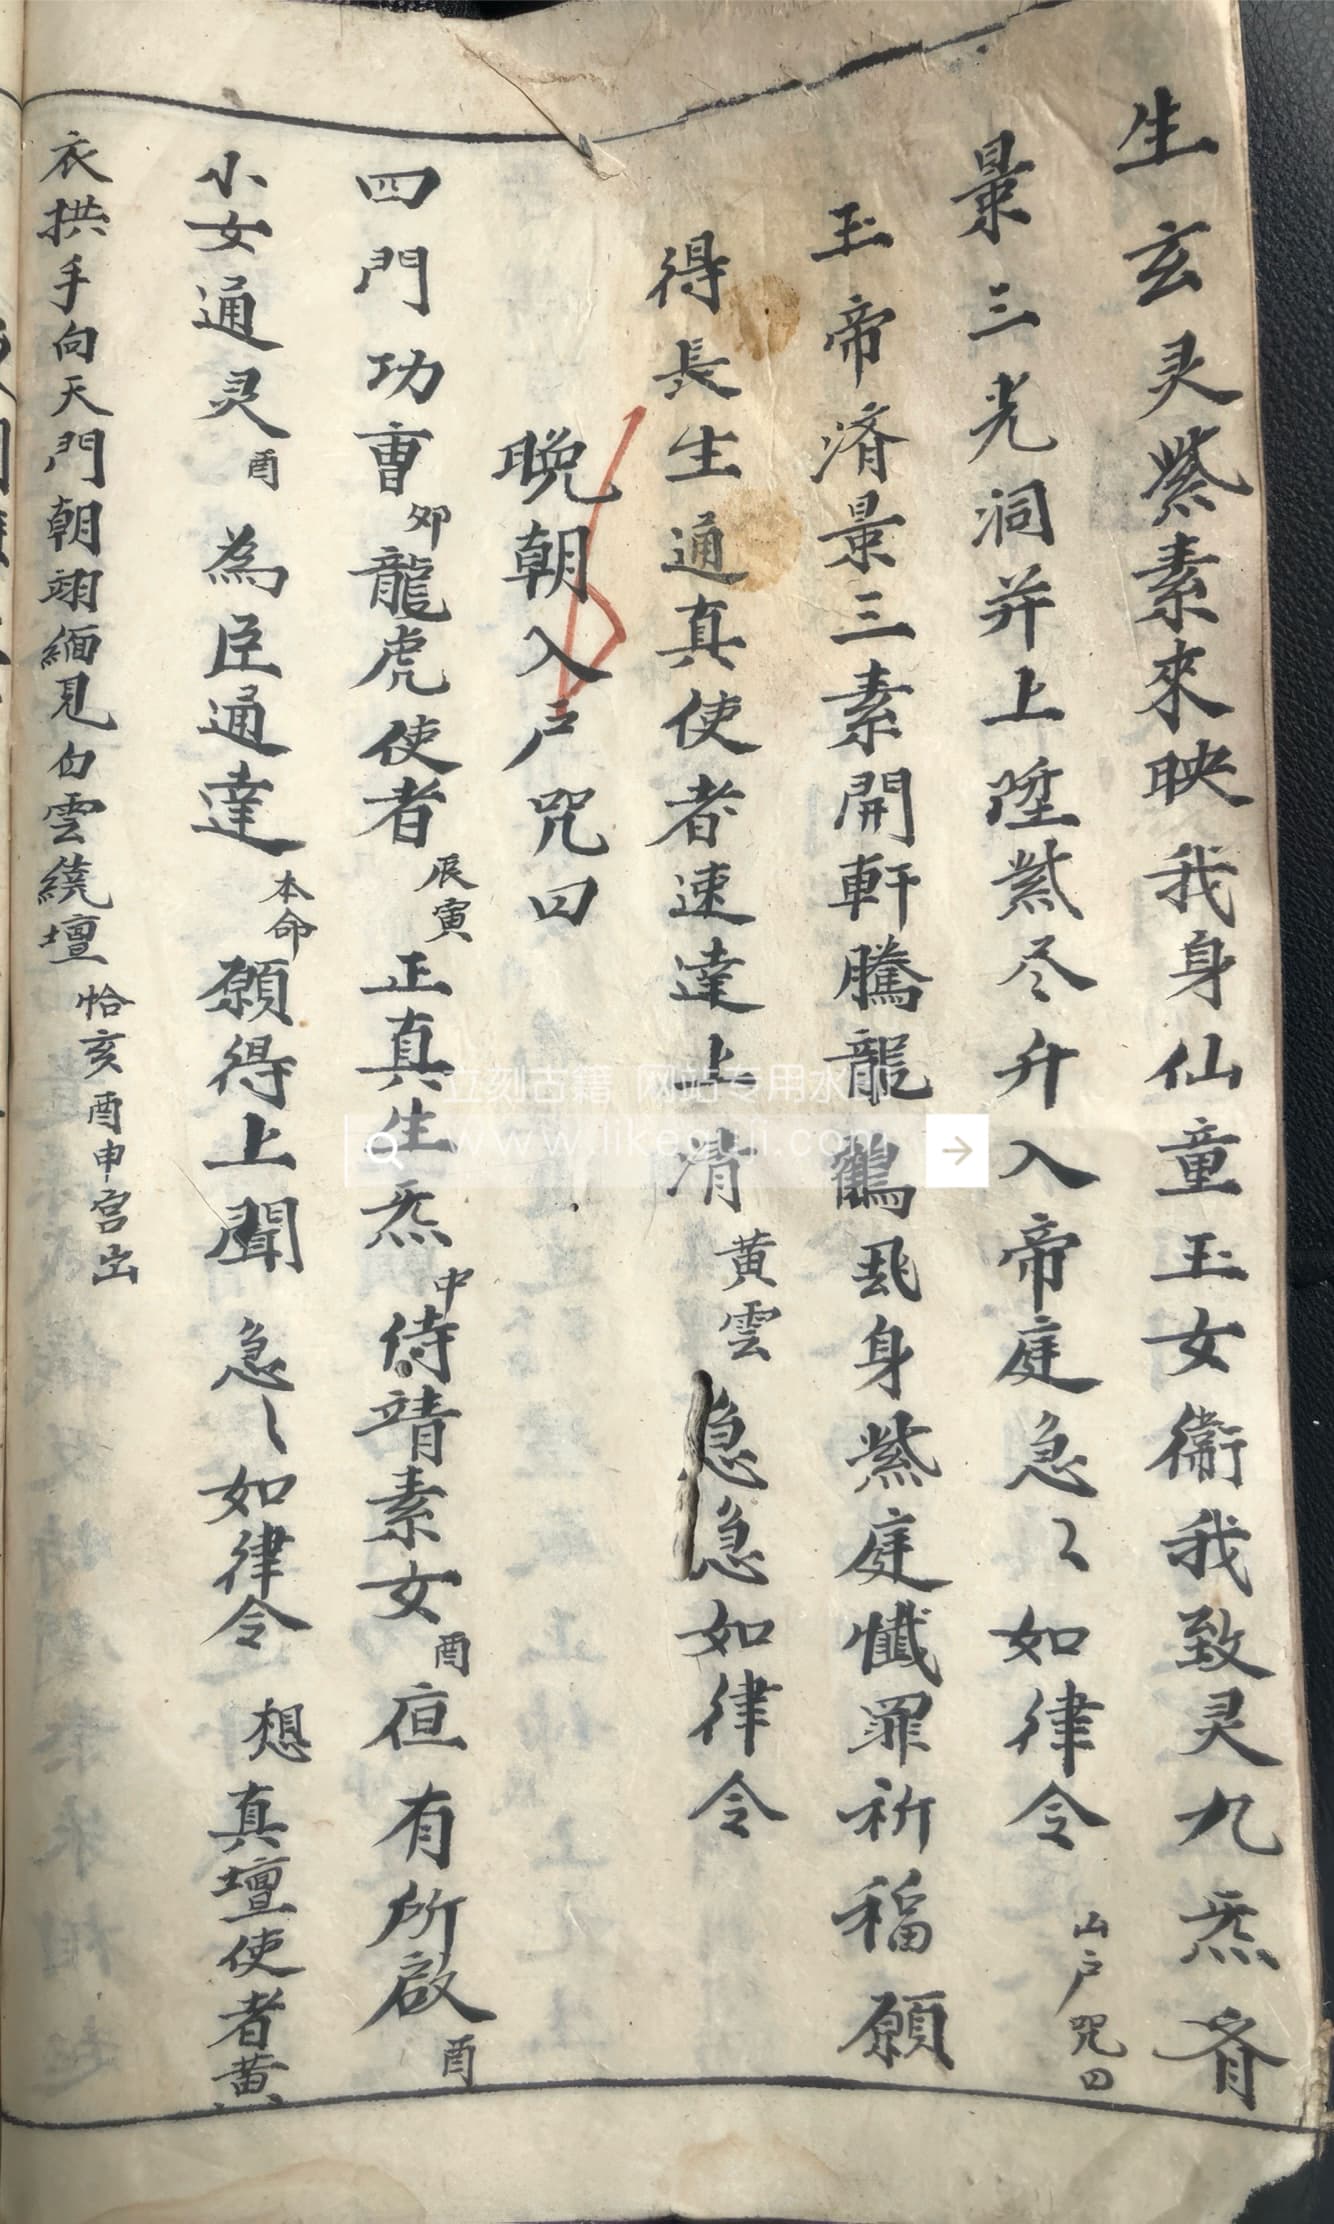 生玄灵紫素來映我身仙童玉女衞我致灵九炁齐
景三光洞并上陞紫尽升入帝庭急〻如律令 出户咒曰
玉帝済景三素開軒騰龍鶴飛身紫庭懺罪祈福願
得長生通真使者速達上清 黄雲 急急如律令
晚朝入户咒曰
四門功曹 卯 龍虎使者 辰寅 正真生炁 中 侍靖素女 酉 洹有所啟 酉
小女通灵 酉 為臣通達 本命 願得上聞 急〻如律令 想真壇使者黄
衣拱手向天門朝翊緬見白雲繞壇 恰亥酉申宫出
立刻古籍 网站专用水印
www.likeguji.com